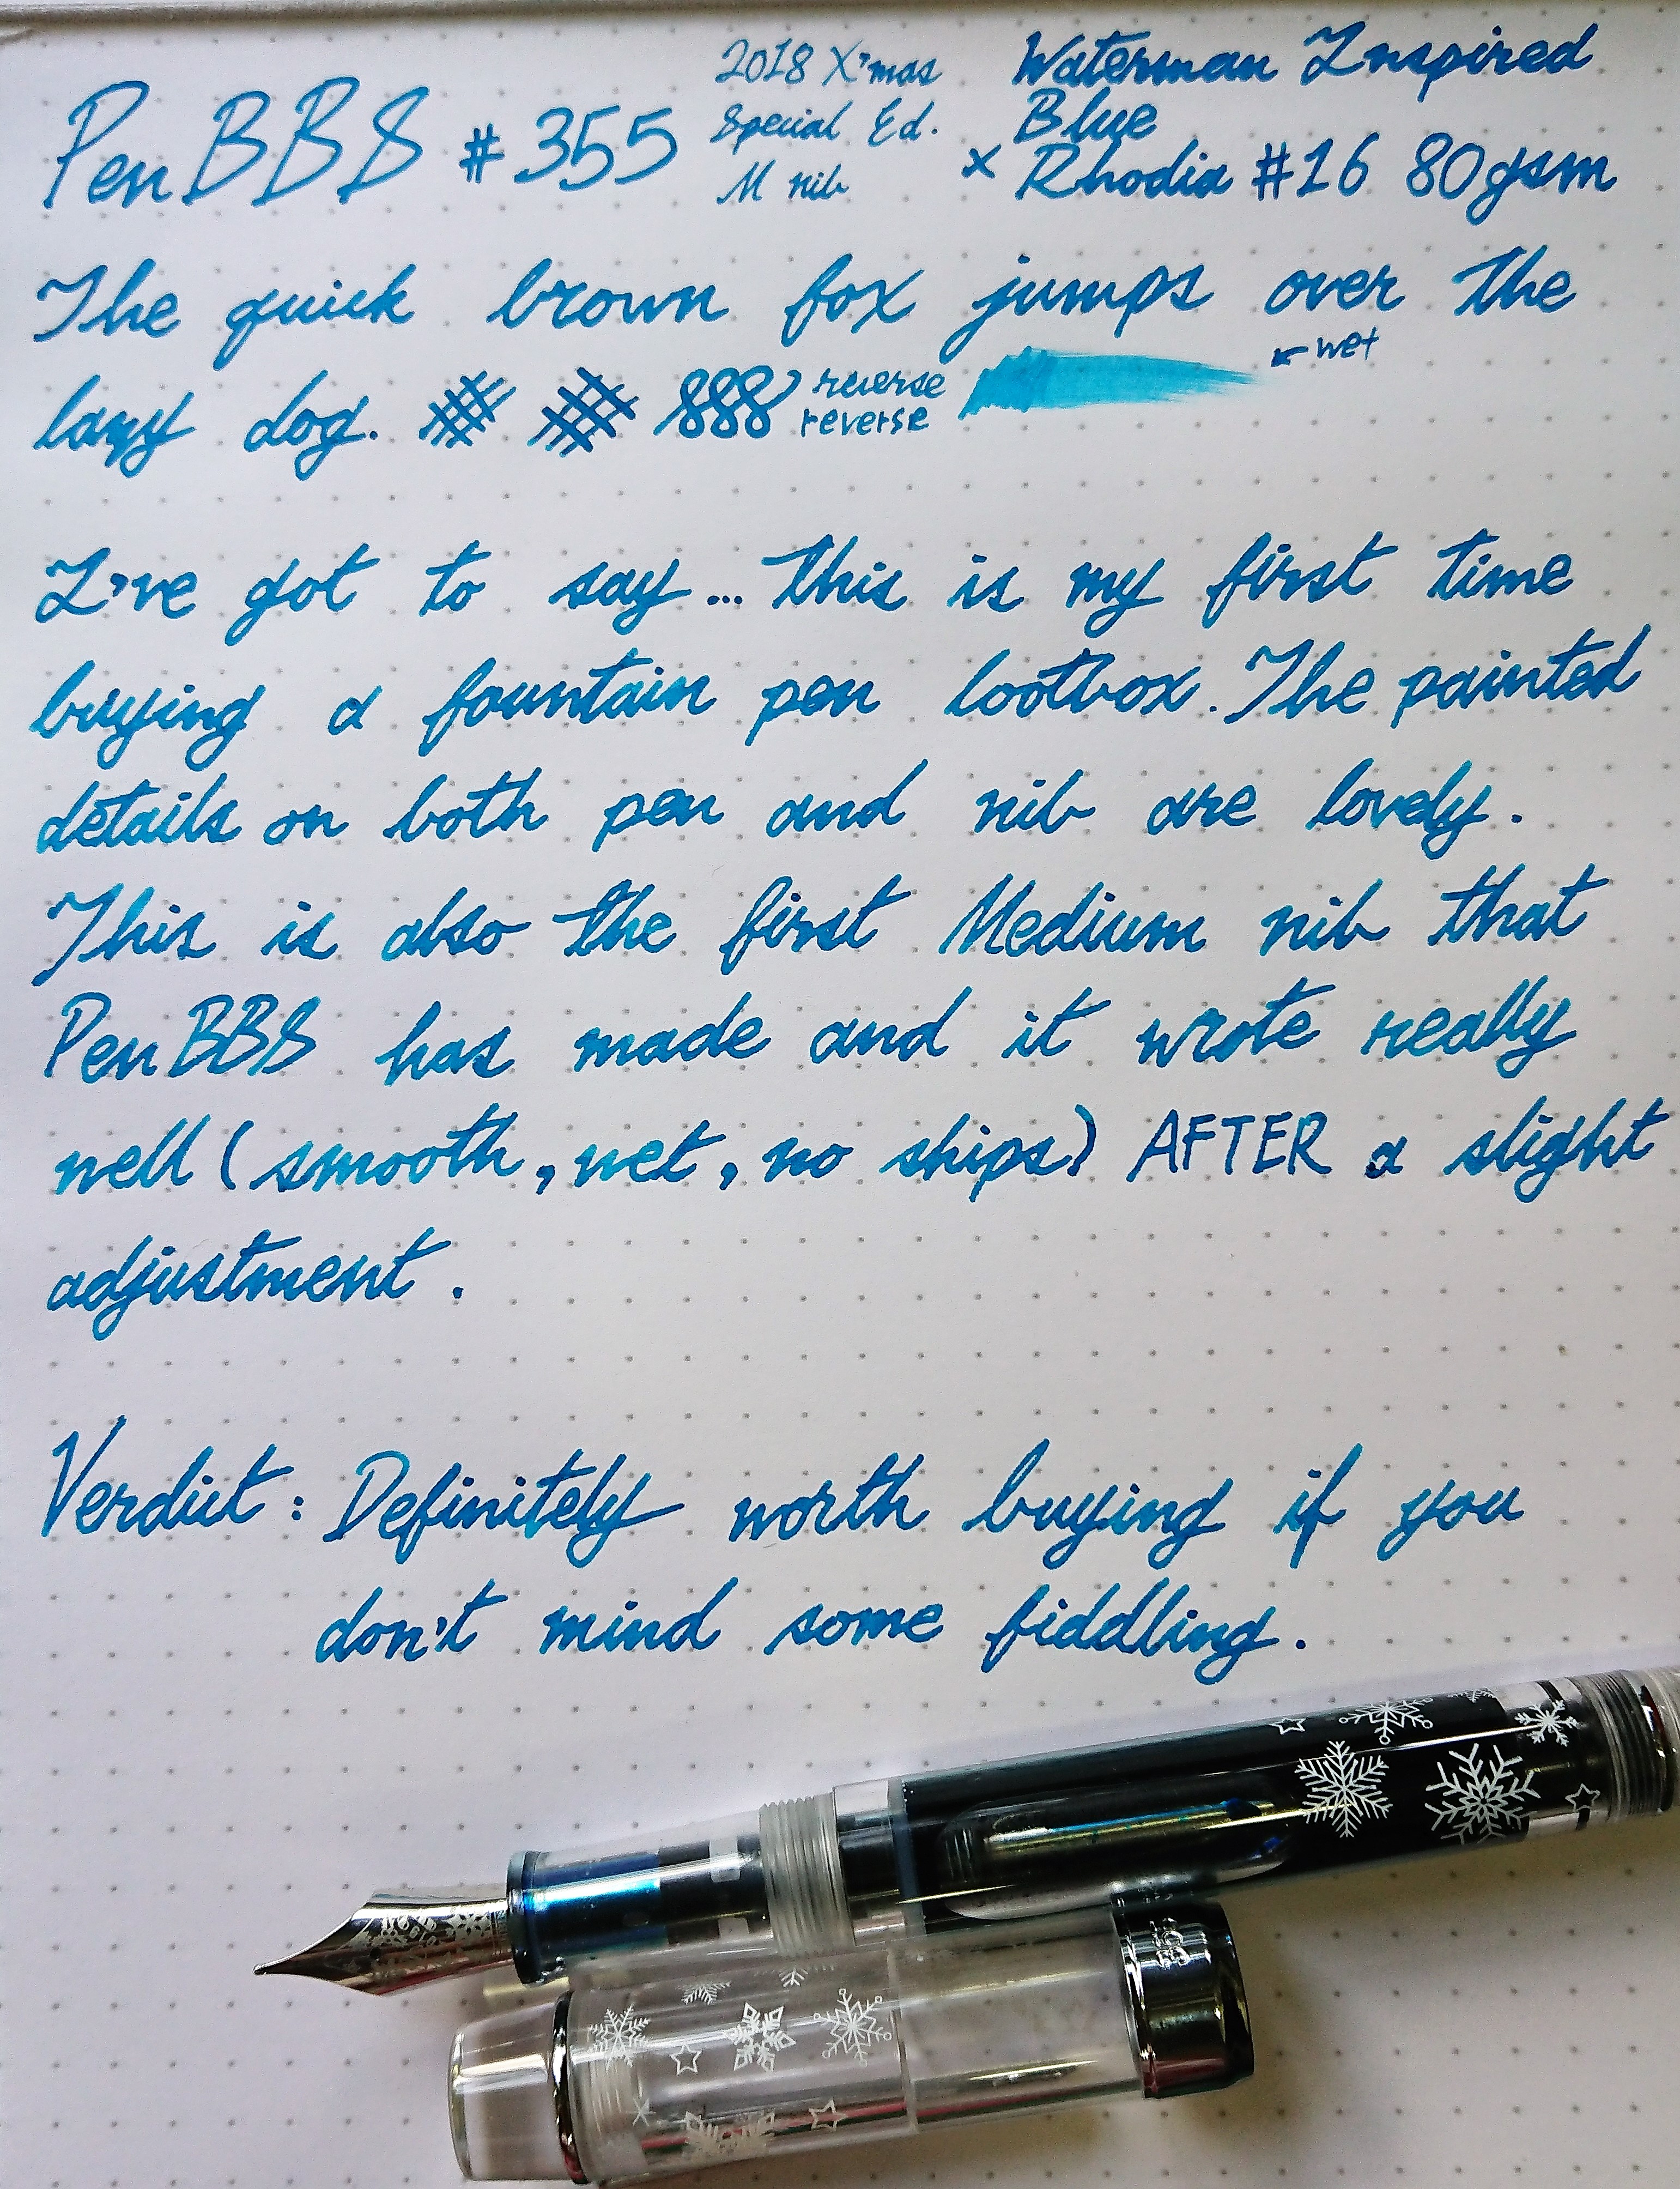 PenBBS #355 2018 X'mas Special Ed. M nib × Waterman Inspired Blue Rhodia #16 80gsm
The quick brown fox jumps over the
lazy dog. # # 888 reverse reverse ← wet
I've got to say... this is my first time
buying a fountain pen lootbox. The painted
details on both pen and nib are lovely.
This is also the first Medium nib that
PenBBS has made and it wrote really
well (smooth, wet, no skips) AFTER a slight
adjustment.
Verdict: Definitely worth buying if you
don't mind some fiddling.